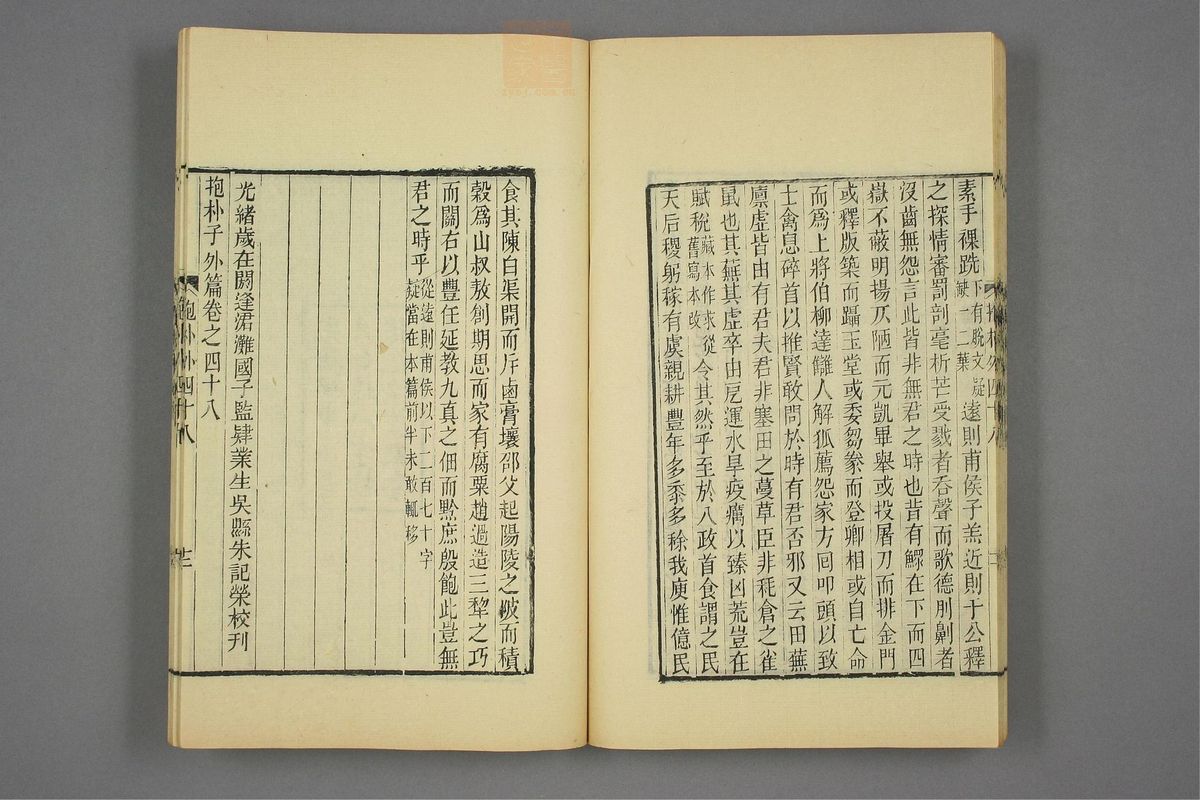 素手裸跣下有脫文疑缺一二葉遠則甫侯子羔近則于公釋
之探情審罰剖毫析芒受戮者吞聲而歌德刖劓者
沒齒無怨言此皆非無君之時也昔有鰥在下而四
嶽不蔽明揚仄陋而元凱畢舉或投屠刀而排金門
或釋版築而躡玉堂或委芻豢而登卿相或自亡命
而爲上將伯柳達讎人解狐薦怨家方回叩頭以致
士禽息碎首以推賢敢問於時有君否邪又云田蕪
廩虛皆由有君夫君非塞田之蔓草臣非秏倉之雀
鼠也其蕪其虛卒由戹運水旱疫癘以臻凶荒豈在
賦稅藏本作求從舊寫本改令其然乎至於八政首食謂之民
天后稷躬稼有虞親耕豐年多黍多稌我庾惟億民
抱朴外四十八
食其陳白渠開而斥鹵膏壤邵父起陽陵之陂而積
穀爲山叔敖創期思而家有腐粟趙過造三犂之巧
而關右以豐任延教九真之佃而黔庶殷飽此豈無
君之時乎從遠則甫侯以下二百七十字疑當在本篇前半未敢輒移
光緒歲在閼逢涒灘國子監肄業生吳縣朱記榮校刊
抱朴子外篇卷之四十八
抱朴外四十八